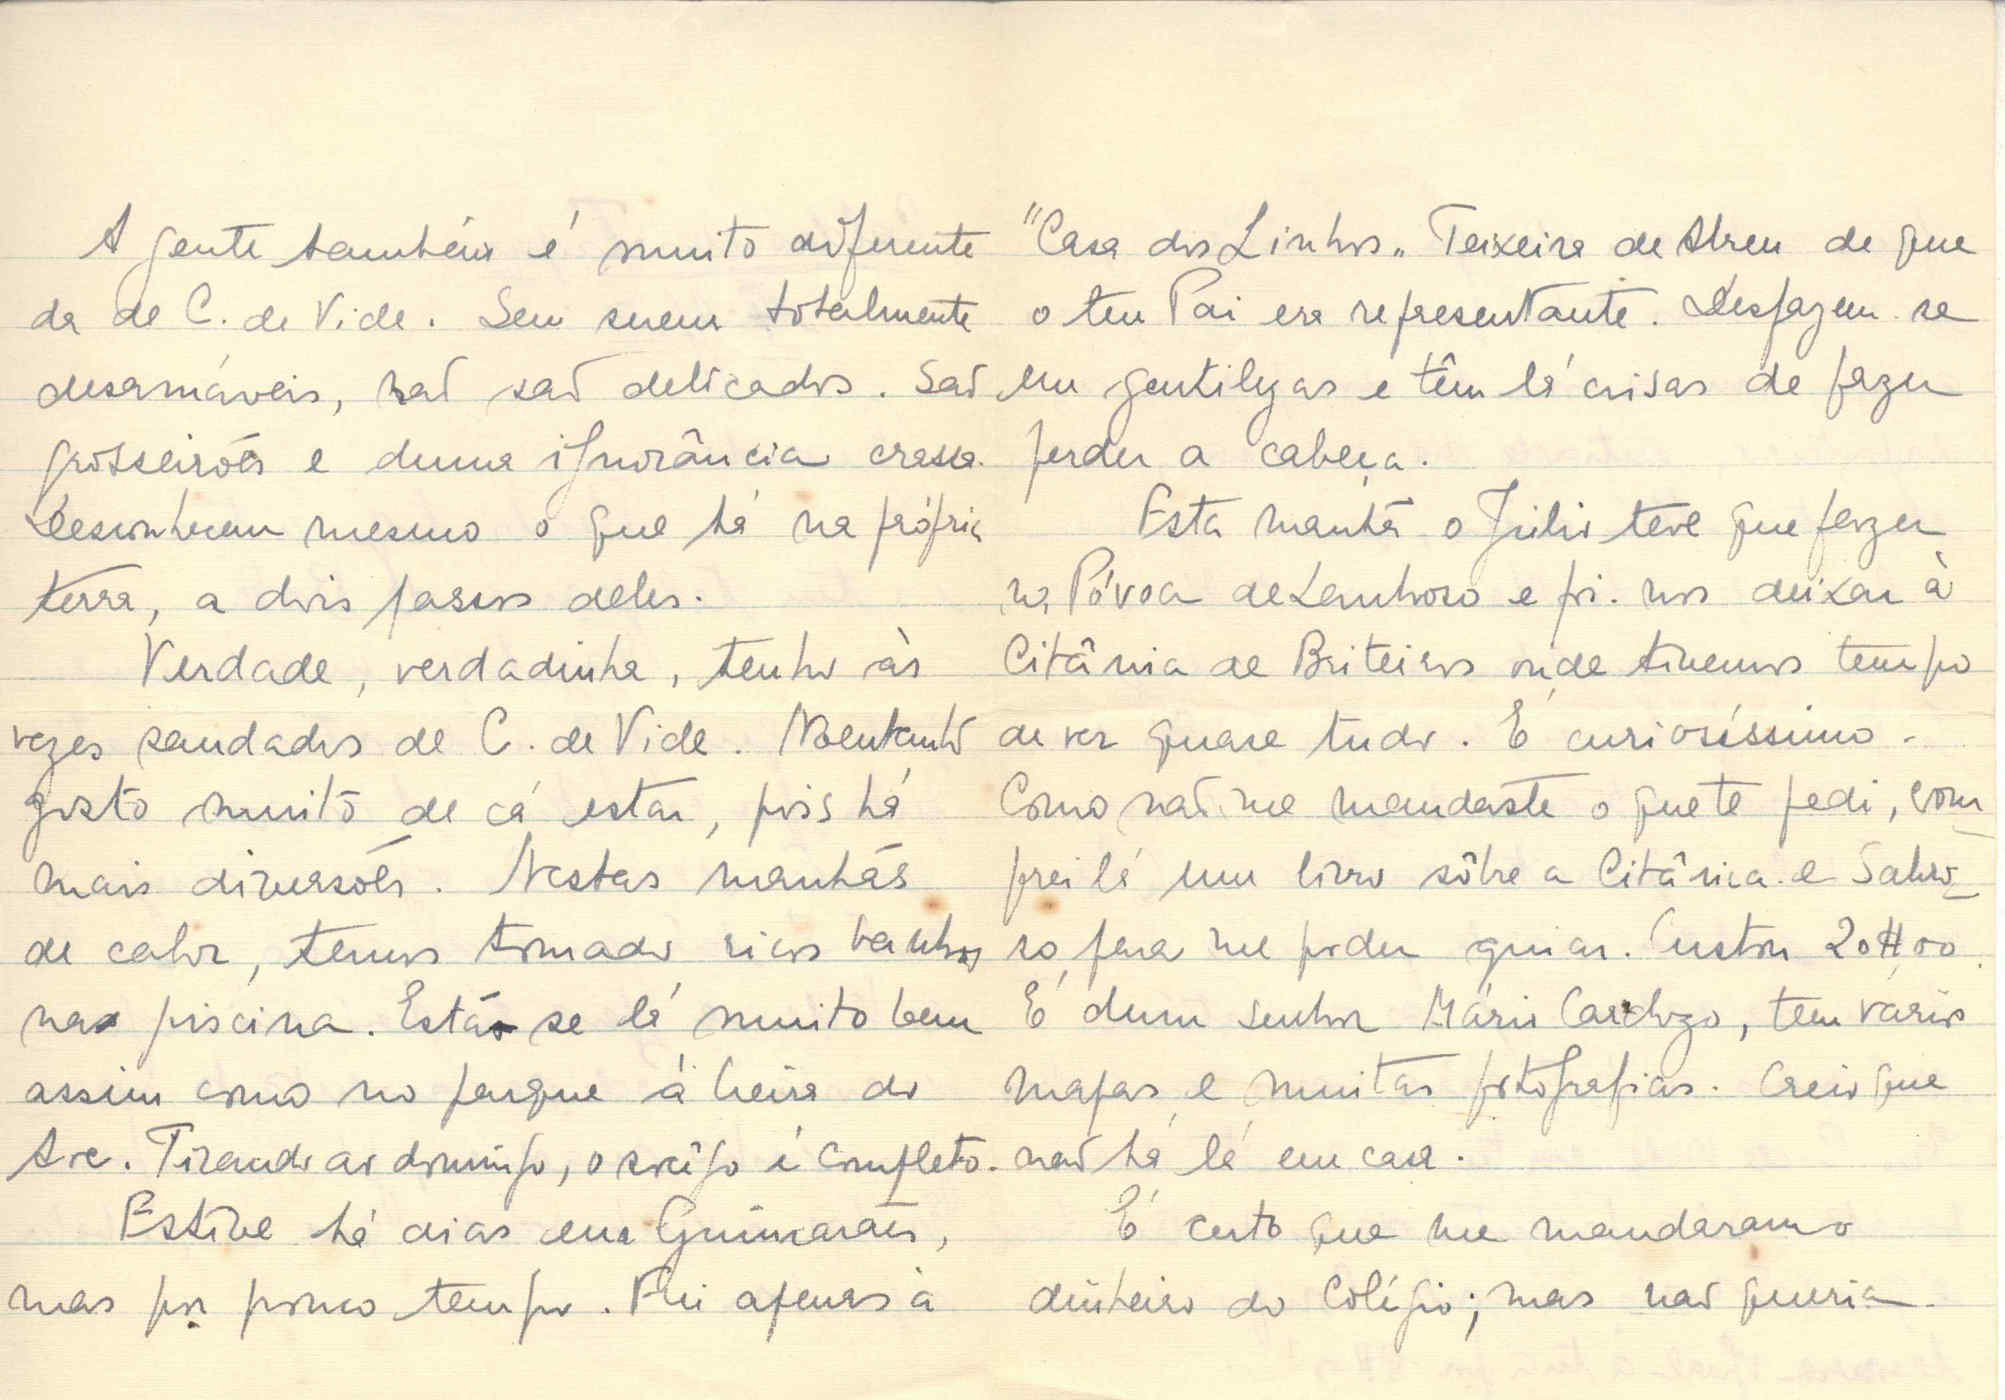 A gente também é muito diferente
da de C. de Vide. Sem serem totalmente
desamáveis, não são delicados. São
grosseirões e duma ignorância crassa.
Desconhecem mesmo o que há na própria
terra, a dois passos deles.
Verdade, verdadinha, tenho às
vezes saudades de C. de Vide. Noentanto
gosto muito de cá estar, pois há
mais diversões. Nestas manhãs
de calor, temos tomado ricos banhos
na piscina. Está-se lá muito bem
assim como no parque à beira do
Ave. Tirando ao domingo, o socêgo é completo.
Estive há dias em Guimarães,
mas por pouco tempo. Fui apenas à
"Casa dos Linhos" Teixeira de Abreu de que
o teu Pai era representante. Desfazem-se
em gentilezas e têm lá coisas de fazer
perder a cabeça.
Esta manhã o Júlio teve que fazer
na Póvoa de Lanhoso e foi-nos deixar à
Citânia de Briteiros onde tivemos tempo
de ver quase tudo. É curiosíssimo.
Como não me mandaste o que te pedi, com
prei lá um livro sôbre a Citânia e Sabro-
so para me poder guiar. Custou 20$00.
É dum senhor Mário Cardozo, tem vários
mapas e muitas fotografias. Creio que
não há lá em casa.
É certo que me mandaram o
dinheiro do Colégio; mas não queria